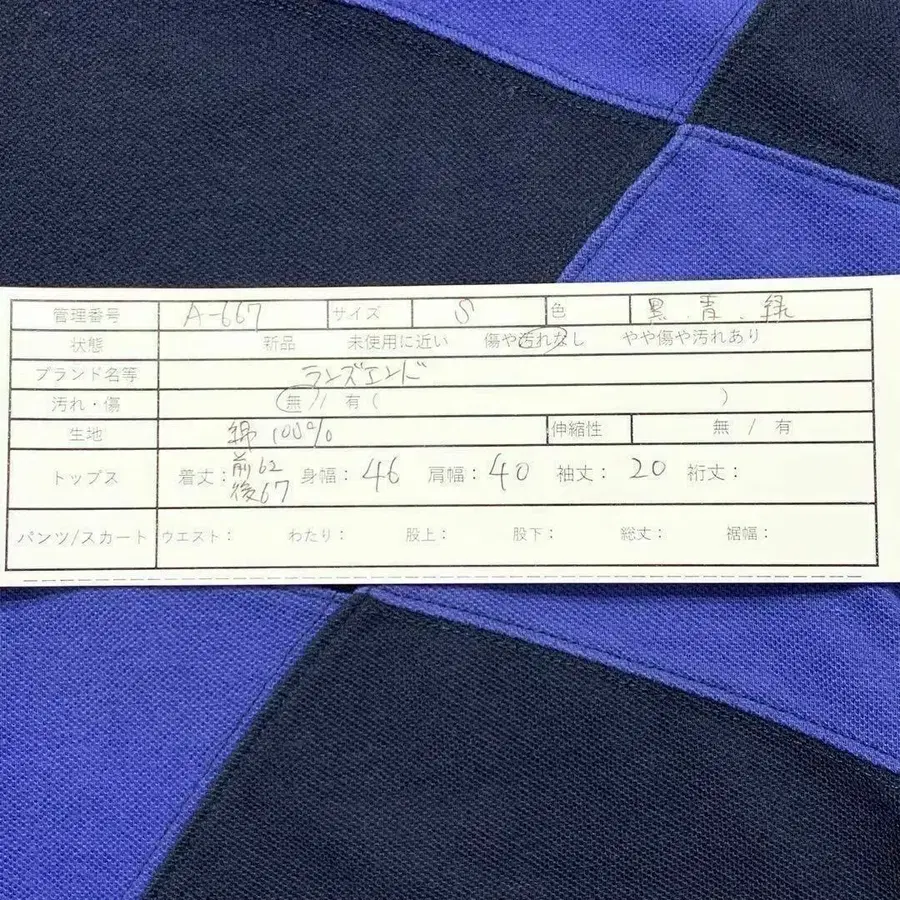 管理番号 A-667 サイズ S 色 黒.青.緑
状態 新品 未使用に近い 傷や汚れなし やや傷や汚れあり
ブランド名等 ランズエンド
汚れ・傷 無 / 有 ( )
生地 綿 100% 伸縮性 無 / 有
トップス 着丈: 前62 後67 身幅: 46 肩幅: 40 袖丈: 20 裄丈:
パンツ/スカート ウエスト: わたり: 股上: 股下: 総丈: 裾幅: